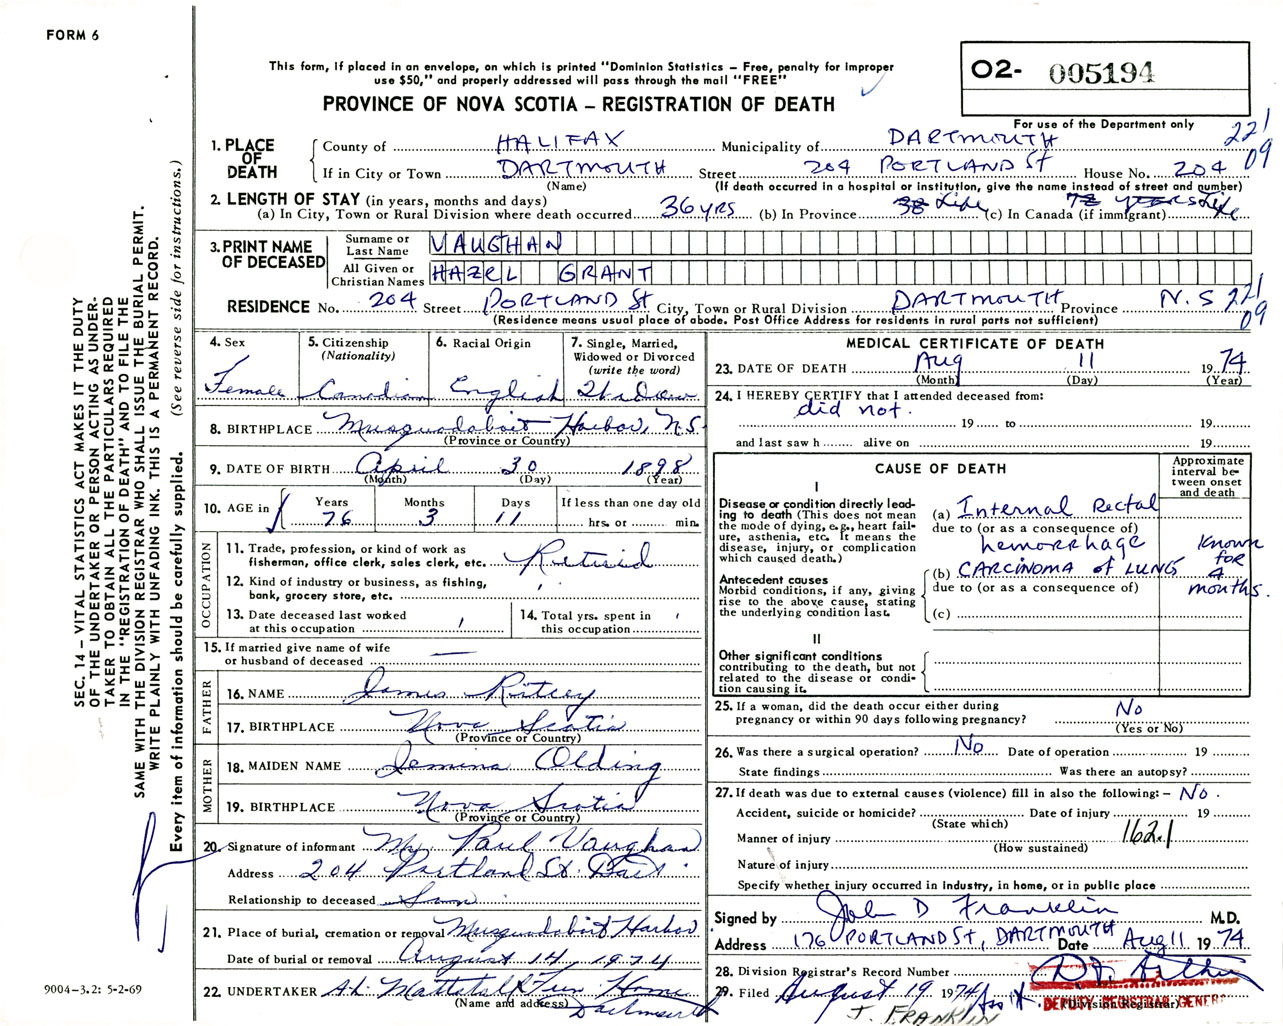 FORM 6
This form, if placed in an envelope, on which is printed "Dominion Statistics – Free, penalty for improper
use $50," and properly addressed will pass through the mail "FREE"
PROVINCE OF NOVA SCOTIA – REGISTRATION OF DEATH
O2- 005194
For use of the Department only
221
09
1. PLACE OF DEATH County of HALIFAX Municipality of DARTMOUTH
If in City or Town DARTMOUTH Street 204 PORTLAND St House No. 204
(Name) (If death occurred in a hospital or institution, give the name instead of street and number)
2. LENGTH OF STAY (in years, months and days)
(a) In City, Town or Rural Division where death occurred 36 yrs (b) In Province 38 Life (c) In Canada (if immigrant) 72 years Life
3. PRINT NAME OF DECEASED
Surname or Last Name VAUGHAN
All Given or Christian Names HAZEL GRANT
RESIDENCE No. 204 Street PORTLAND St City, Town or Rural Division DARTMOUTH Province N.S 221
09
(Residence means usual place of abode. Post Office Address for residents in rural parts not sufficient)
4. Sex Female
5. Citizenship (Nationality) Canadian
6. Racial Origin English
7. Single, Married, Widowed or Divorced (write the word) Widow
8. BIRTHPLACE Musquodoboit Harbor, N.S.
(Province or Country)
9. DATE OF BIRTH April 30 1898
(Month) (Day) (Year)
10. AGE in Years 76 Months 3 Days 11 If less than one day old hrs. or min.
OCCUPATION
11. Trade, profession, or kind of work as
fisherman, office clerk, sales clerk, etc. Retired
12. Kind of industry or business, as fishing,
bank, grocery store, etc.
13. Date deceased last worked
at this occupation
14. Total yrs. spent in
this occupation
15. If married give name of wife
or husband of deceased —
FATHER
16. NAME James Ritcey
17. BIRTHPLACE Nova Scotia
(Province or Country)
MOTHER
18. MAIDEN NAME Jemina Olding
19. BIRTHPLACE Nova Scotia
(Province or Country)
20. Signature of informant Mr. Paul Vaughan
Address 204 Portland St. Dart
Relationship to deceased Son
21. Place of burial, cremation or removal Musquodoboit Harbor
Date of burial or removal August 14, 1974
22. UNDERTAKER Mattatall Fun. Home
(Name and address) Dartmouth
MEDICAL CERTIFICATE OF DEATH
23. DATE OF DEATH Aug 11 1974
(Month) (Day) (Year)
24. I HEREBY CERTIFY that I attended deceased from:
did not.
19 to 19
and last saw h alive on 19
CAUSE OF DEATH
Approximate interval between onset and death
I
Disease or condition directly lead-
ing to death (This does not mean
the mode of dying, e.g., heart fail-
ure, asthenia, etc. It means the
disease, injury, or complication
which caused death.)
(a) Internal Rectal
due to (or as a consequence of)
hemorrhage
Antecedent causes
Morbid conditions, if any, giving
rise to the above cause, stating
the underlying condition last.
(b) CARCINOMA of LUNG
due to (or as a consequence of)
(c)
Known
for
4
months.
II
Other significant conditions
contributing to the death, but not
related to the disease or condi-
tion causing it.
25. If a woman, did the death occur either during
pregnancy or within 90 days following pregnancy? No
(Yes or No)
26. Was there a surgical operation? No Date of operation 19
State findings Was there an autopsy?
27. If death was due to external causes (violence) fill in also the following: – No.
Accident, suicide or homicide? Date of injury 19
(State which)
Manner of injury 162.1
(How sustained)
Nature of injury
Specify whether injury occurred in industry, in home, or in public place
Signed by John D Franklin M.D.
Address 176 PORTLAND St, DARTMOUTH Date Aug 11 1974
28. Division Registrar's Record Number
29. Filed August 19 1974
DEPUTY REGISTRAR GENERAL
(Division Registrar)
J. FRANKLIN
SEC. 14 – VITAL STATISTICS ACT MAKES IT THE DUTY
OF THE UNDERTAKER OR PERSON ACTING AS UNDER-
TAKER TO OBTAIN ALL THE PARTICULARS REQUIRED
IN THE "REGISTRATION OF DEATH" AND TO FILE THE
SAME WITH THE DIVISION REGISTRAR WHO SHALL ISSUE THE BURIAL PERMIT.
WRITE PLAINLY WITH UNFADING INK. THIS IS A PERMANENT RECORD.
Every item of information should be carefully supplied. (See reverse side for instructions.)
9004-3.2: 5-2-69